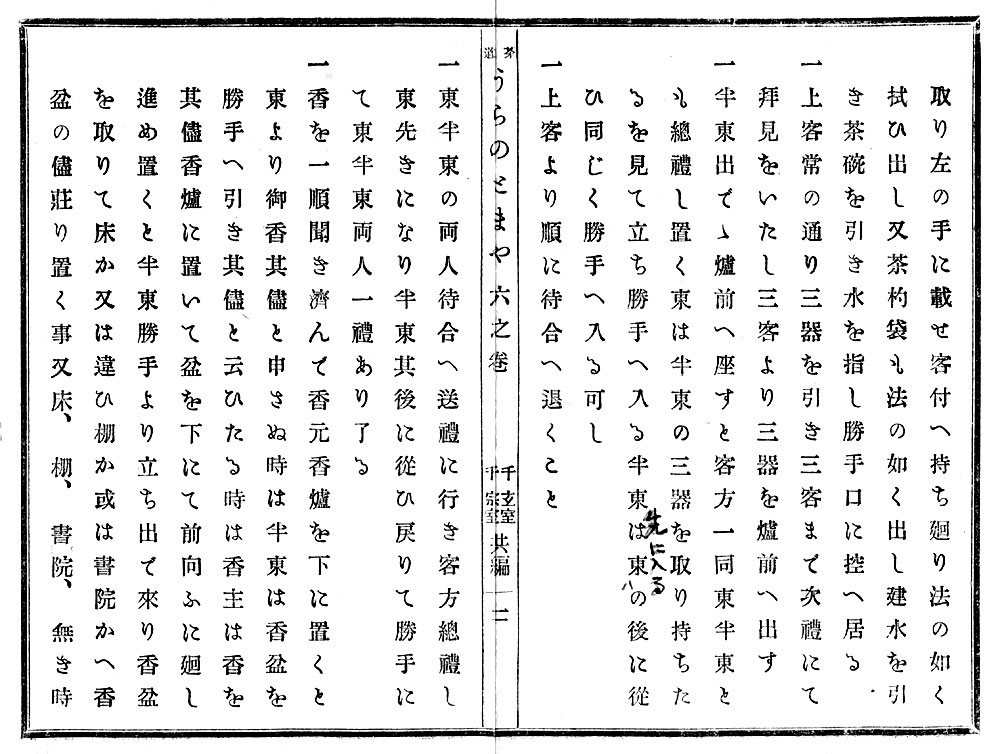 取り左の手に載せ客付へ持ち廻り法の如く
拭ひ出し又茶杓袋も法の如く出し建水を引
き茶碗を引き水を指し勝手口に控へ居る
一上客常の通り三器を引き三客まで次禮にて
拜見をいたし三客より三器を爐前へ出す
一半東出でゝ爐前へ座すと客方一同東半東と
も總禮し置く東は半東の三器を取り持ちた
るを見て立ち勝手へ入る半東は東の後に從
先に入る
ひ同じく勝手へ入る可し
一上客より順に待合へ退くこと
茶道うらのとまや六之卷 千玄室 千宗室 共編 二
一東半東の両人待合へ送禮に行き客方總禮し
東先きになり半東其後に從ひ戻りて勝手に
て東半東両人一禮あり了る
一香を一順聞き濟んで香元香爐を下に置くと
東より御香其儘と申さぬ時は半東は香盆を
勝手へ引き其儘と云ひたる時は香主は香を
其儘香爐に置いて盆を下にて前向ふに廻し
進め置くと半東勝手より立ち出で來り香盆
を取りて床か又は違ひ棚か或は書院かへ香
盆の儘莊り置く事又床、棚、書院、無き時